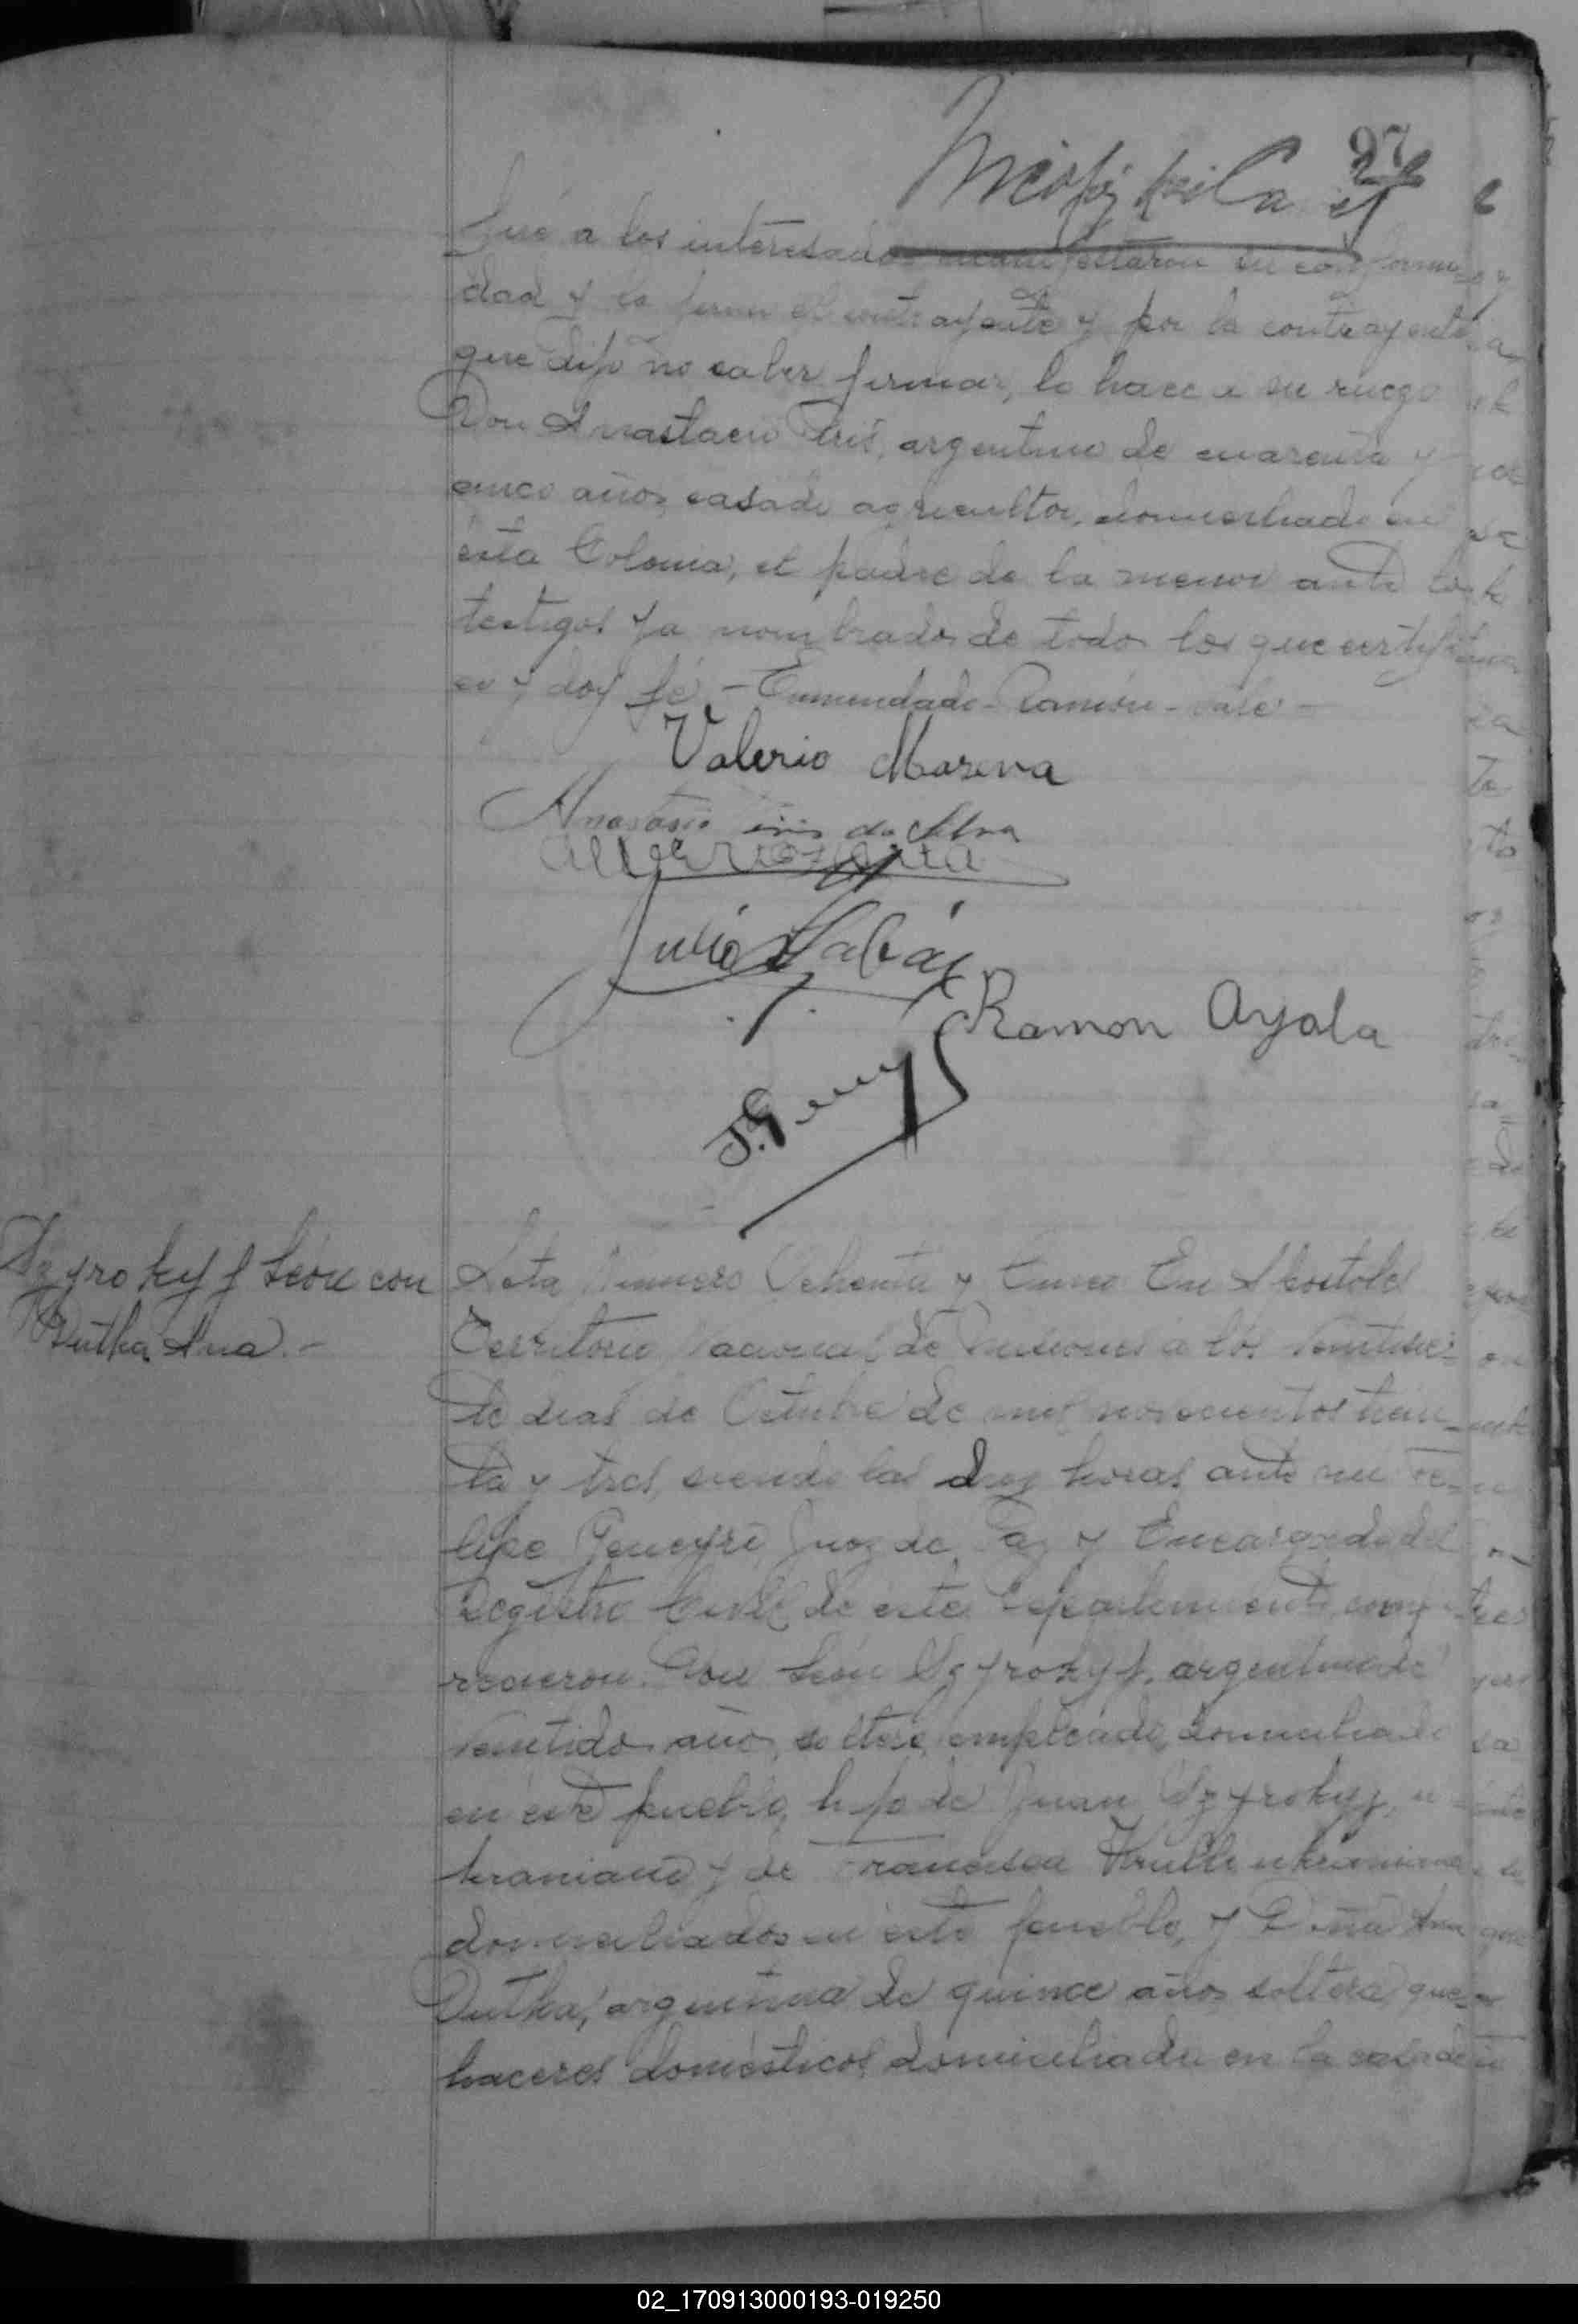 97
que a los interesados manifestaron su conformi-
dad y la firma el contrayente y por la contrayente
que dijo no saber firmar, lo hace a su ruego
Don Anastacio Iris, argentino de cuarenta y
cinco años, casado agricultor, domiciliado en
esta Colonia, el padre de la menor ante los
testigos ya nombrados de todo los que certifi
co y doy fé.- Enmendado- Ramón - vale -
Valerio Mareva
Anastasio iris da Silva
Julio
Ramon Ayala
Szyrokyj León con
Dutka Ana.-
Acta Número Ochenta y Cinco En Apostoles
Territorio Nacional de Misiones a los Veintisie-
te dias de Octubre de mil novecientos trein-
ta y tres, siendo las diez horas ante mi Fe-
lipe Juez de Paz y Encargado del
Registro Civil de este Departamento, comp
recieron: Don León Szyrokyj, argentino de
veintidos años, soltero, empleado, domiciliado
en este pueblo, hijo de Juan Szyrokyj, u
kraniano y de Francisca ukraniana
domiciliados en este pueblo, y Doña Ana
Dutka, argentina de quince años soltera, que-
haceres domésticos, domiciliada en la casa de
02_170913000193-019250